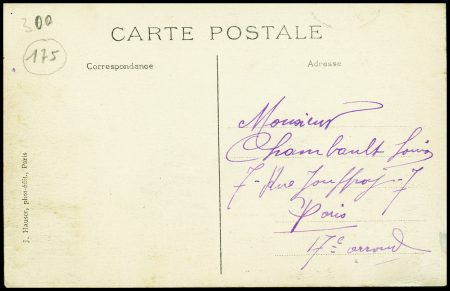 300
175
CARTE POSTALE
Correspondance
Adresse
Monsieur
Chambault Louis
7 - Rue Jouffroy - 7
Paris
17e arrond
J. Hauser, phot-édit., Paris